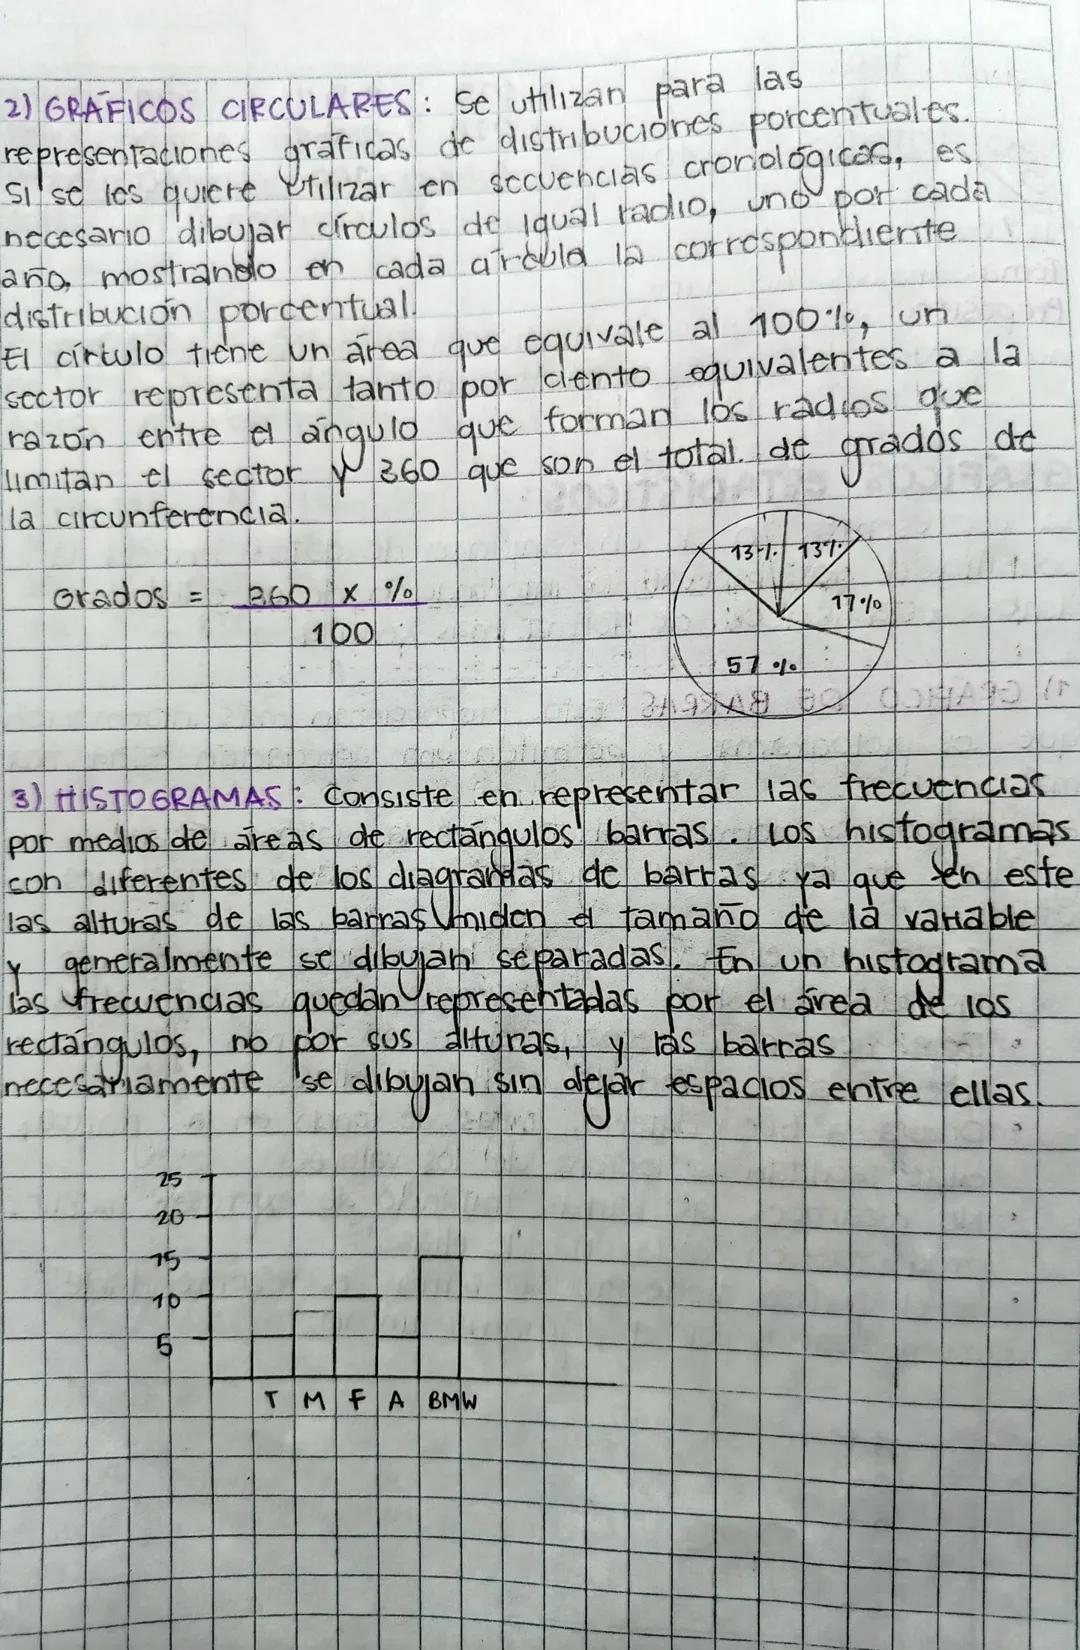 2) GRÁFICOS CIRCULARES: Se utilizan para las
representaciones gráficas de distribuciones porcentuales.
Si se les quiere utilizar en secuencias cronológicas, es
necesario dibujar círculos de igual radio, uno por cada
año, mostrando en cada círculo la correspondiente
distribución porcentual.
El círculo tiene un área que equivale al 100%, un
sector representa tanto por ciento equivalentes a la
razón entre el ángulo que forman los radios que
limitan el sector y 360 que son el total de grados de
la circunferencia.
13% 13%
Grados = 360 x %
100
17%
57 %
3) HISTOGRAMAS: Consiste en representar las frecuencias
por medios de áreas de rectángulos barras. Los histogramas
son diferentes de los diagramas de barras ya que en este
las alturas de las barras miden el tamaño de la variable
y generalmente se dibujan separadas. En un histograma
las frecuencias quedan representadas por el área de los
rectángulos, no por sus alturas, y las barras
necesariamente se dibujan sin dejar espacios entre ellas.
25
20
15
10
5
T M F A BMW